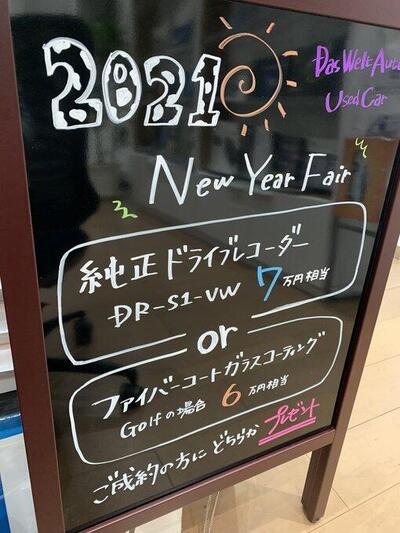 2021
Das WeltAuto
Used Car
New Year Fair
純正ドライブレコーダー
DR-S1-VW 7万円相当
or
ファイバーコートガラスコーティング
Golfの場合 6万円相当
ご成約の方にどちらかプレゼント